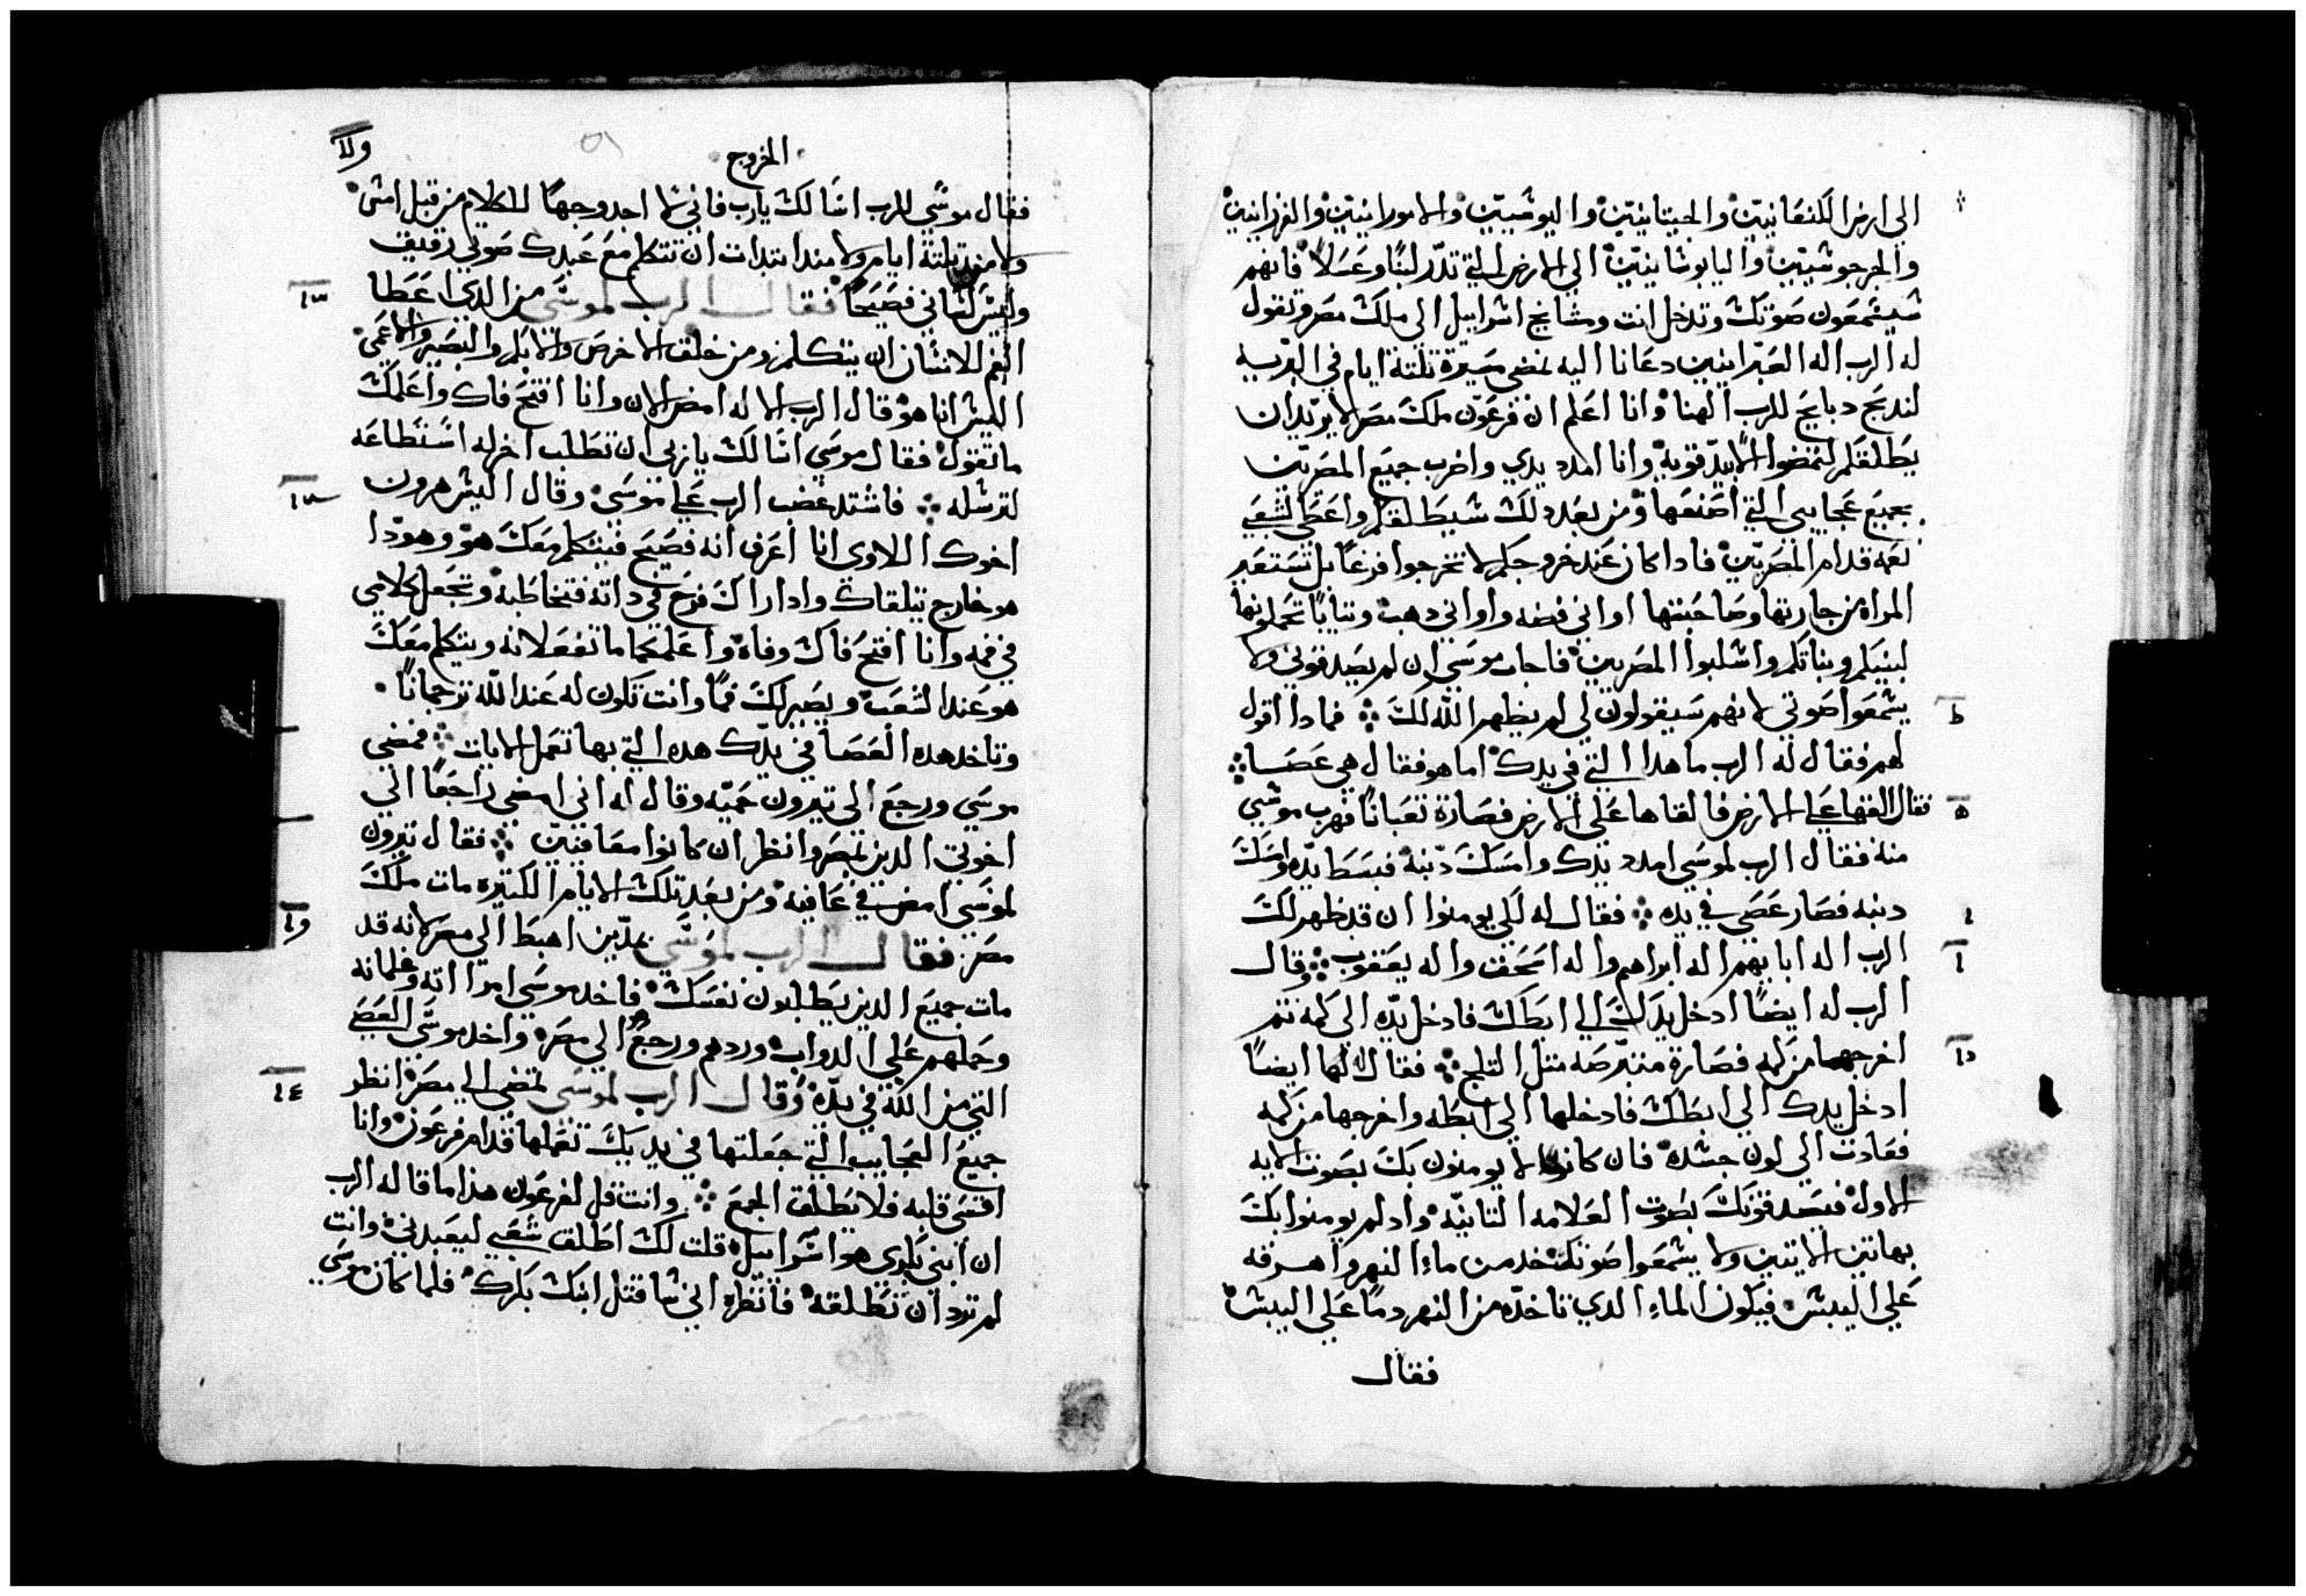 الي ارض الكنعانيين والحيتانيين واليوشيين والامورانيين والفرزانيين
والجرجوشيين واليابوشانيين الي الارض التي تدر لبنًا وعسلاً فانهم
سيسمعون صوتك وتدخل انت ومشايخ اشراييل الي ملك مصر وتقول
له الرب اله العبرانيين دعانا اليه نمضي مسيرة تلتة ايام في البرية
لندبح دبايح للرب الهنا وانا اعلم ان فرعون ملك مصر لا يريد ان
يطلقكم لتمضوا الا بيد قوية وانا امدد يدي واضرب جميع المصريين
بجميع عجايبي التي اصنعها ومن بعد دلك شيطلقكم واعطي لشعبي
نعمه قدام المصريين فادا كان عند خروجكم لا تخرجوا فرغًا بل تستعير
المراه من جارتها وصاحبتها اواني فضه واواني دهب وتيابًا تحملونها
لبنيكم وبناتكم واشلبوا المصريين فاجاب موسي ان لم يصدقوني ولا
يسمعوا صوتي لانهم سيقولون لي لم يظهر الله لك فمادا اقول
لهم فقال له الرب ما هدا التي في يدك اما هو فقال هي عصا
فقال القها علي الارض فالقاها علي الارض فصارة تعبانًا فهرب موشي
منه فقال الرب لموسي امدد يدك وامسك دنبه فبسط يده وامسك
دنبه فصار عصي في يده فقال له لكي يومنوا ان قد ظهر لك
الرب اله ابايهم اله ابراهيم واله اسحق واله يعقوب وقال
الرب له ايضًا ادخل يدك الي ابطك فادخل يده الي كمه تم
اخرجها من كمه فصارة متبرصه متل التلج فقال له ايضًا
ادخل يدك الي ابطك فادخلها الي ابطه واخرجها من كمه
فعادت الي لون جسده فان كانوا لا يومنون بك بصوت الايه
الاول فيصدقونك بصوت العلامه التانيه واد لم يومنوا بك
بهاتين الايتين ولا يسمعوا صوتك خد من ماء النهر واهرقه
علي اليبش فيكون الماء الدي تاخده من النهر دمًا علي اليبش
فقال
الخروج
فقال موسي للرب اسالك يارب فاني لا اجد وجهًا للكلام من قبل امش
ولا مند تلتة ايام ولا مند ابتدات ان تتكلم مع عبدك صوتي رقيق
وليس لساني فصيحًا فقال الرب لموسي من الدي اعطا
الفم للانسان ان يتكلم ومن خلق الاخرص والابكم والبصير والاعمي
اليش انا هو قال الرب الاله امض الان وانا افتح فاك واعلمك
ما تقول فقال موسي اسالك يا ربي ان تطلب اخر له استطاعه
لترسله فاشتد غضب الرب علي موسي وقال اليش هرون
اخوك اللاوي انا اعرف انه فصيح فيتكلم معك هو وهودا
هو خارج تتلقاك وادا راك فرح في داته فتخاطبه وتجعل كلامي
في فمه وانا افتح فاك وفاه واعلمكما ما تفعلانه ويتكلم معك
هو عند الشعب ويصير لك فمًا وانت تكون له عند الله ترجمانًا
وتاخد هده العصا في يدك هده التي بها تعمل الايات فمضي
موسي ورجع الي تيرون حميه وقال له اني امضي راجعًا الي
اخوتي الدين بمصر وانظر ان كانوا معافين فقال تيرون
لموسي امض في عافيه ومن بعد تلك الايام الكتيره مات ملك
مصر فقال الرب لموسي بمدين اهبط الي مصر لانه قد
مات جميع الدين يطلبون نفسك فاخد موسي امراته وغلمانه
وحملهم علي الدواب وردهم ورجع الي مصر واخد موسي العصي
التي من الله في يده وقال الرب لموسي تمضي الي مصر انظر
جميع العجايب التي جعلتها في يديك تعملها قدام فرعون وانا
اقسي قلبه فلا يطلق الجمع وانت قل لفرعون هدا ما قاله الرب
ان ابني بكري هو اسراييل قلت لك اطلق شعبي ليعبدني وانت
لم ترد ان تطلقه فانظر اني ساقتل ابنك بكرك فلما كان موسي